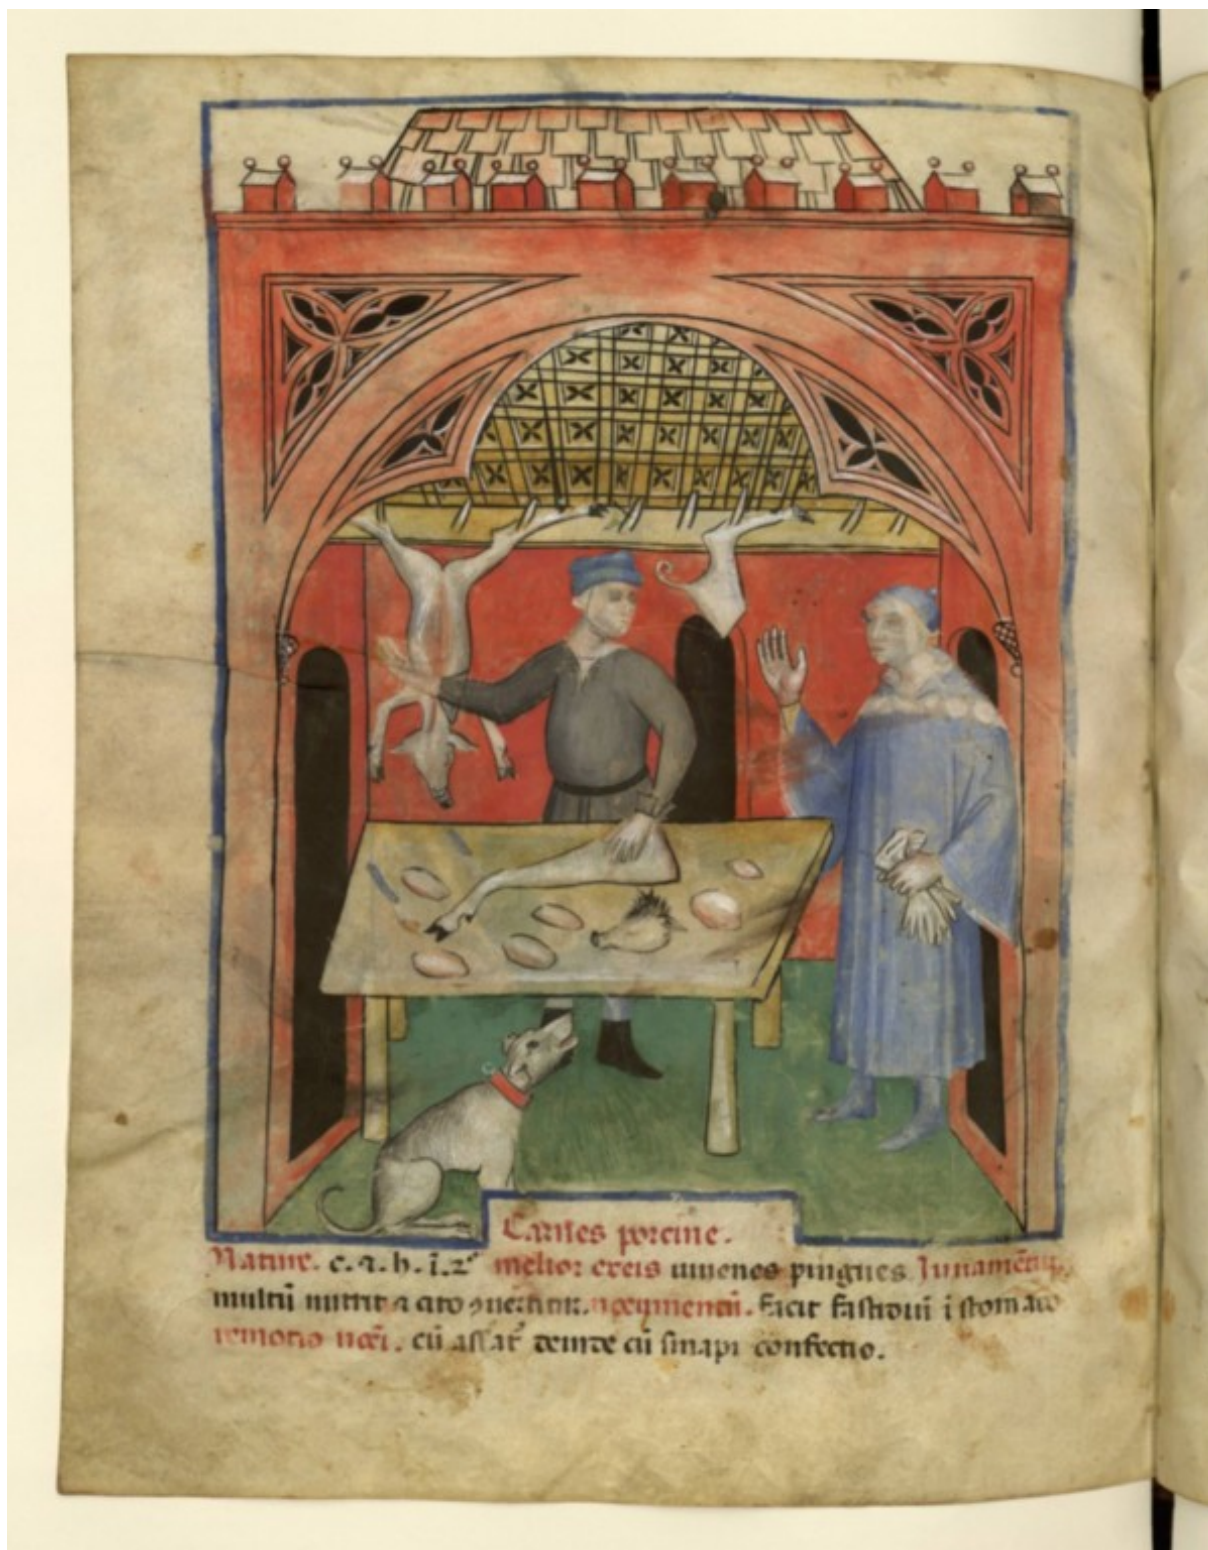 Carnes porcine.
Nature. c. ⁊ h. ĩ. 2º melior ex eis iuuenes pingues Iuuamẽtũ,
multũ nutrit ⁊ cito nocumentũ. facit fastidiũ ĩ stomaco
remotio noc̃i. cũ assat᷑ deinde cũ sinapi confectio.